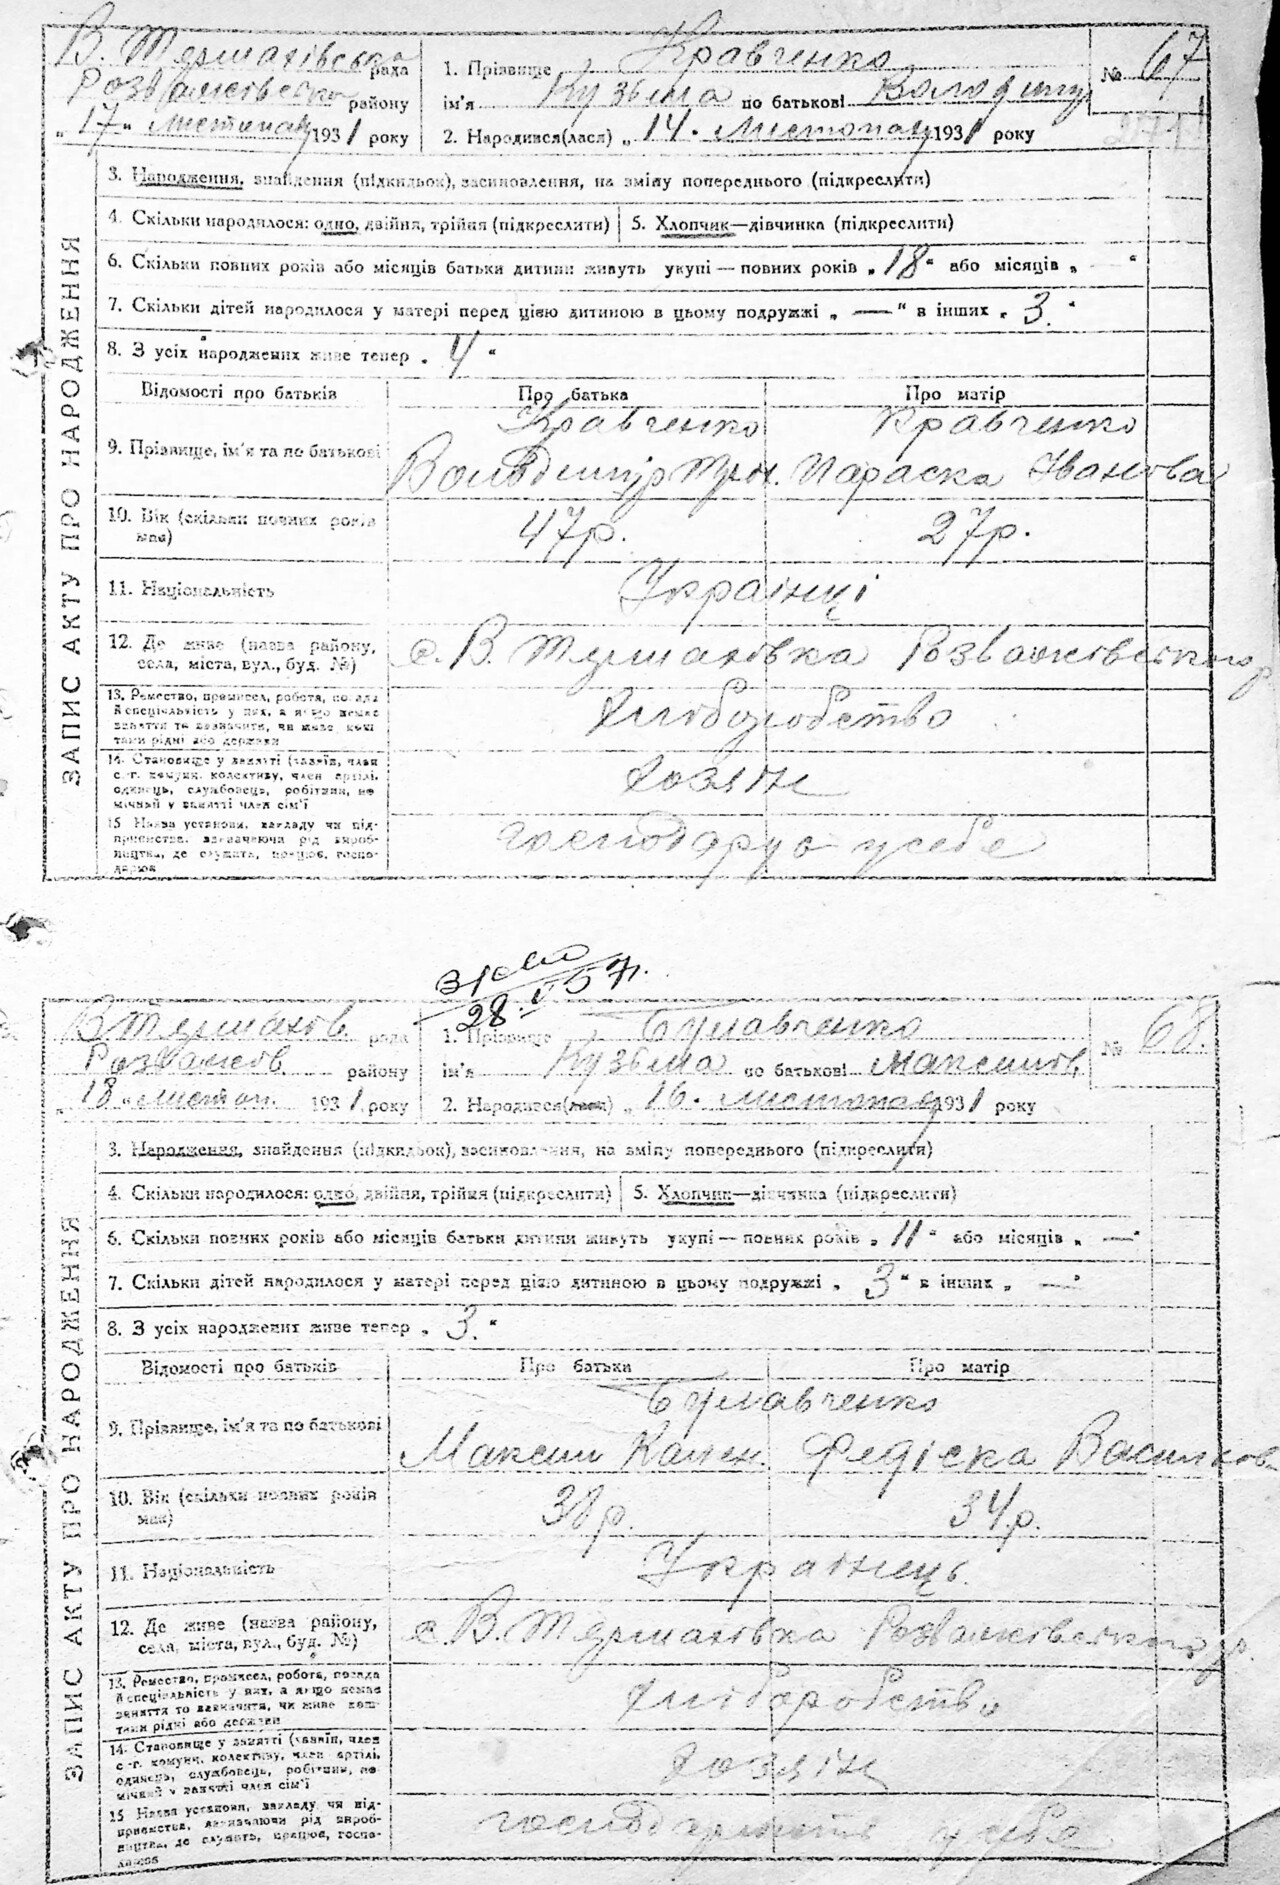 В. Термахівська рада
Розважівська району
„17“ листопад 1931 року
1. Прізвище Кравченко
ім'я Кузьма по батькові Володимир
2. Народився(лася) „14. Листопад 1931 року
№ 67
ЗАПИС АКТУ ПРО НАРОДЖЕННЯ
3. Народження, знайдення (підкидьок), засиновлення, на зміну попереднього (підкреслити)
4. Скільки народилося: одно, двійня, трійня (підкреслити) 5. Хлопчик—дівчинка (підкреслити)
6. Скільки повних років або місяців батьки дитини живуть укупі — повних років „18“ або місяців „—“
7. Скільки дітей народилося у матері перед цією дитиною в цьому подружжі „—“ в інших „3.“
8. З усіх народжених живе тепер „4“
Відомості про батьків Про батька Про матір
9. Прізвище, ім'я та по батькові Кравченко Кравченко
Володимир Параска Іванова
10. Вік (скільки повних років має) 47р. 27р.
11. Національність Українці
12. Де живе (назва району, села, міста, вул., буд. №) с. В. Термахівка Розважівського р
13. Ремество, промисел, робота, посада й спеціяльність у них, а якщо немає заняття то зазначити, чи живе коштами рідні або держави Хліборобство
14. Становище у занятті (хазяїн, член с.-г. комуни, колективу, член артілі, одинець, службовець, робітник, помічний у занятті член сім'ї Хозяїн
15 Назва установи, закладу чи підприємства, зазначаючи рід виробництва, де служить, працює, господарює господарує у себе
28. V 57
В. Термахов. рада
Розважов району
„18“ листоп. 1931 року
1. Прізвище Булавченко
ім'я Кузьма по батькові Максимов.
2. Народився(лася) „16. листопад 1931 року
№ 68
ЗАПИС АКТУ ПРО НАРОДЖЕННЯ
3. Народження, знайдення (підкидьок), засиновлення, на зміну попереднього (підкреслити)
4. Скільки народилося: одно, двійня, трійня (підкреслити) 5. Хлопчик—дівчинка (підкреслити)
6. Скільки повних років або місяців батьки дитини живуть укупі — повних років „11“ або місяців „—“
7. Скільки дітей народилося у матері перед цією дитиною в цьому подружжі „3“ в інших „—“
8. З усіх народжених живе тепер „3.“
Відомості про батьків Про батька Про матір
9. Прізвище, ім'я та по батькові Булавченко
Максим Федіска Васильков
10. Вік (скільки повних років має) 38р. 34р.
11. Національність Українець.
12. Де живе (назва району, села, міста, вул., буд. №) с. В. Термахівка Розважівського р.
13. Ремество, промисел, робота, посада й спеціяльність у них, а якщо немає заняття то зазначити, чи живе коштами рідні або держави Хліборобство
14. Становище у занятті (хазяїн, член с.-г. комуни, колективу, член артілі, одинець, службовець, робітник, помічний у занятті член сім'ї Хозяїн
15 Назва установи, закладу чи підприємства, зазначаючи рід виробництва, де служить, працює, господарює у себе